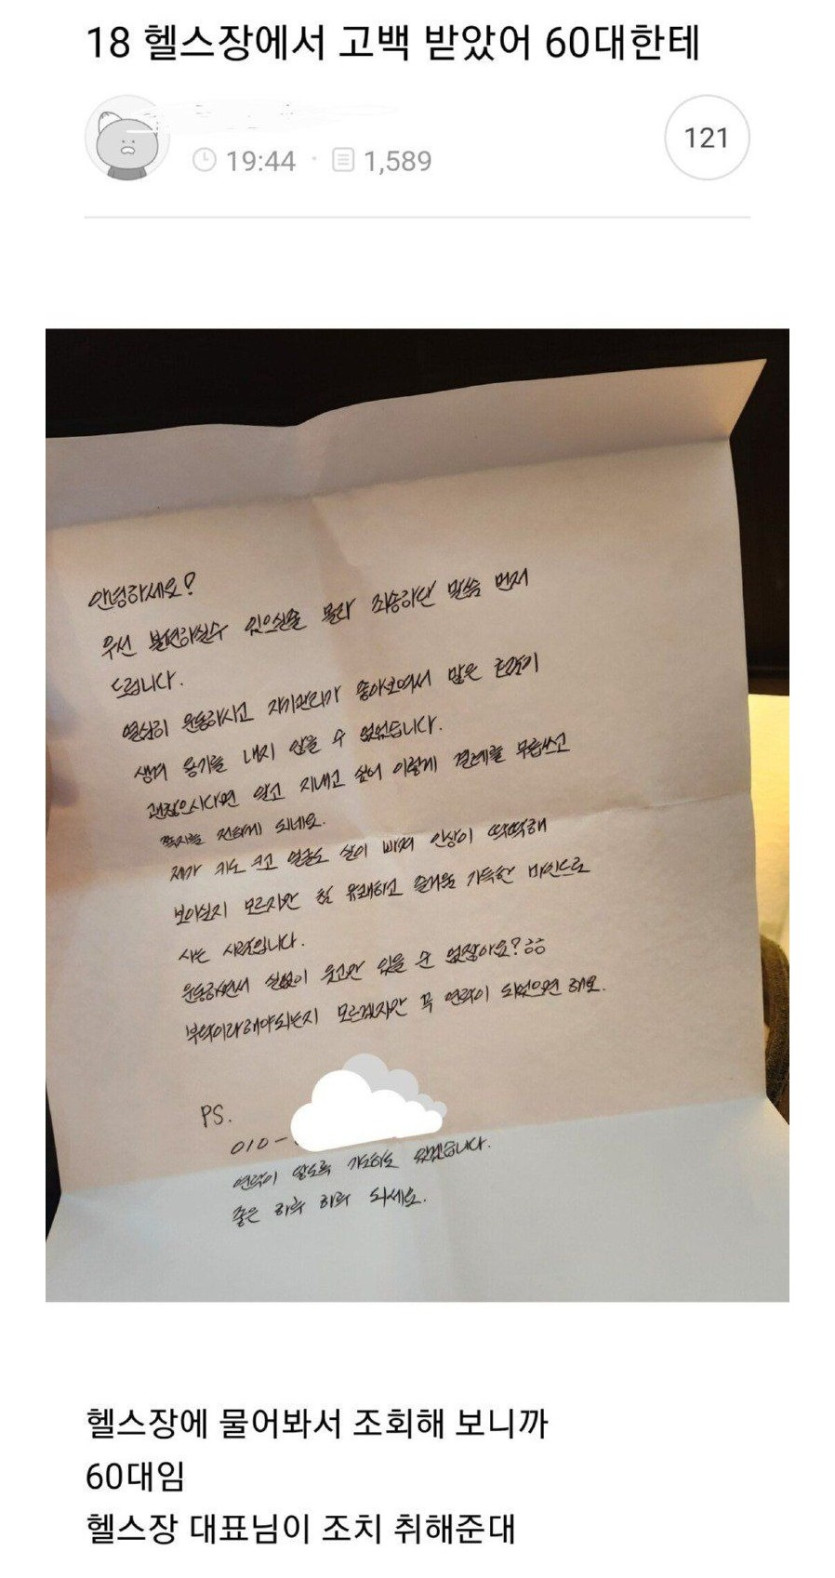 18 헬스장에서 고백 받았어 60대한테
19:44 · 1,589
121
안녕하세요?
우선 불편하실수 있으실줄 몰라 죄송하단 말씀 먼저
드립니다.
열심히 운동하시고 자기관리가 좋아보여서 많은 호감이
생겨 용기를 내지 않을 수 없었습니다.
괜찮으시다면 알고 지내고 싶어 이렇게 결례를 무릅쓰고
쪽지를 전하게 되네요.
제가 키도 크고 얼굴도 살이 빠져 인상이 딱딱해
보이실지 모르지만 참 유쾌하고 즐거움 가득한 마인드로
사는 사람입니다.
운동하면서 실없이 웃고만 있을 순 없잖아요?
부탁이라해야되는지 모르겠지만 꼭 연락이 되었으면 해요.
PS.
010-
연락이 올도록 기도하고 있겠습니다.
좋은 하루 하루 되세요.
헬스장에 물어봐서 조회해 보니까
60대임
헬스장 대표님이 조치 취해준대